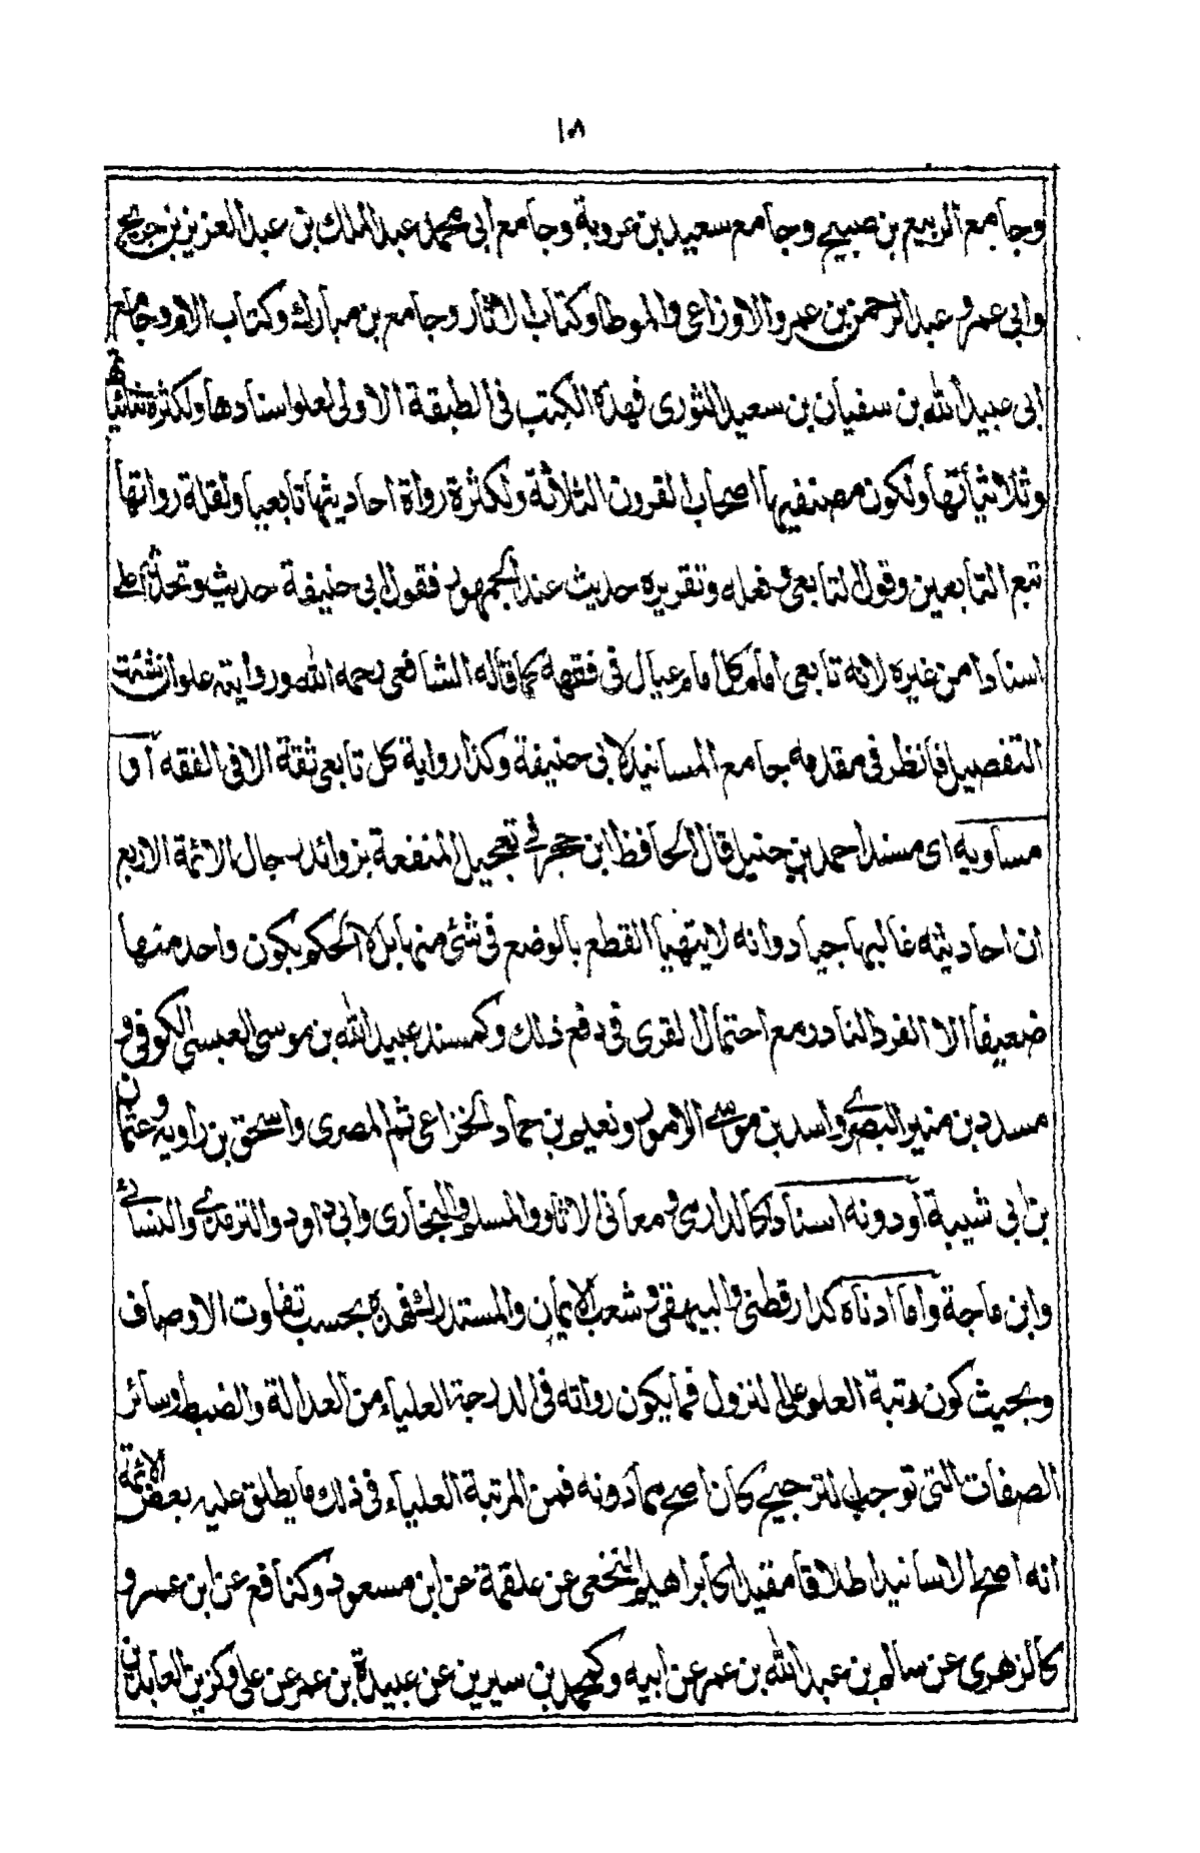 ١٠٨
وجامع الربيع بن صبيح وجامع سعيد بن عروبة وجامع ابي محمد عبد الملك بن عبد العزيز بن جريج
وابي عمرو عبد الرحمن بن عمرو الاوزاعي والموطا وكتاب الاثار وجامع بن مبارك وكتاب الام وجامع
ابي عبيد الله بن سفيان بن سعيد الثوري فهذه الكتب في الطبقة الاولى لعلو اسنادها ولكثرة ثنائياتها
وثلاثياتها ولكون مصنفيها اصحاب القرون الثلاثة ولكثرة رواة احاديثها تابعيا ولقلة رواتها
تبع التابعين وقول التابعي وفعله وتقريره حديث عند الجمهور فقول ابي حنيفة حديث وتحدثه اعلى
اسنادا من غيره لانه تابعي امام كل امام عيال في فقهه كما قاله الشافعي رحمه الله وروايته علو ان شئت
التفصيل فانظر في مقدمه جامع المسانيد لابي حنيفة وكذا رواية كل تابعي ثقة الا في الفقه او
مساويه اي مسند احمد بن حنبل قال الحافظ ابن حجر في تعجيل المنفعة بزوائد رجال الائمة الاربع
ان احاديثه غالبها جياد وانه لا يتهيا القطع بالوضع في شئ منها بل ولا الحكم بكون واحد منها
ضعيفا الا الفرد النادر مع احتمال القوى في دفع ذلك وكمسند عبيد الله بن موسى العبسي الكوفي و
مسدد بن منير البصري واسد بن موسى الاموي ونعيم بن حماد الخزاعي ثم المصري واسحق بن راويه وعثمان
بن ابي شيبة او دونه اسنادا كالدارمي ومعاني الاثار والمسلم والبخاري وابي داود والترمذي والنسائي
وابن ماجة واما ادناه كدار قطني والبيهقي وشعب الايمان والمستدرك فهذه بحسب تفاوت الاوصاف
وبحيث كون رتبة العلو على النزول فما يكون رواته في الدرجة العلياء من العدالة والضبط وسائر
الصفات التي توجب الترجيح كان اصح مما دونه فمن المرتبة العلياء في ذلك ما يطلق عليه بعض الائمة
انه اصح الاسانيد اطلاقا مقيدا كابراهيم النخعي عن علقمة عن ابن مسعود وكنافع عن ابن عمر و
كالزهري عن سالم بن عبد الله بن عمر عن ابيه وكمحمد بن سيرين عن عبيدة بن عمر عن علي وكزين العابدين